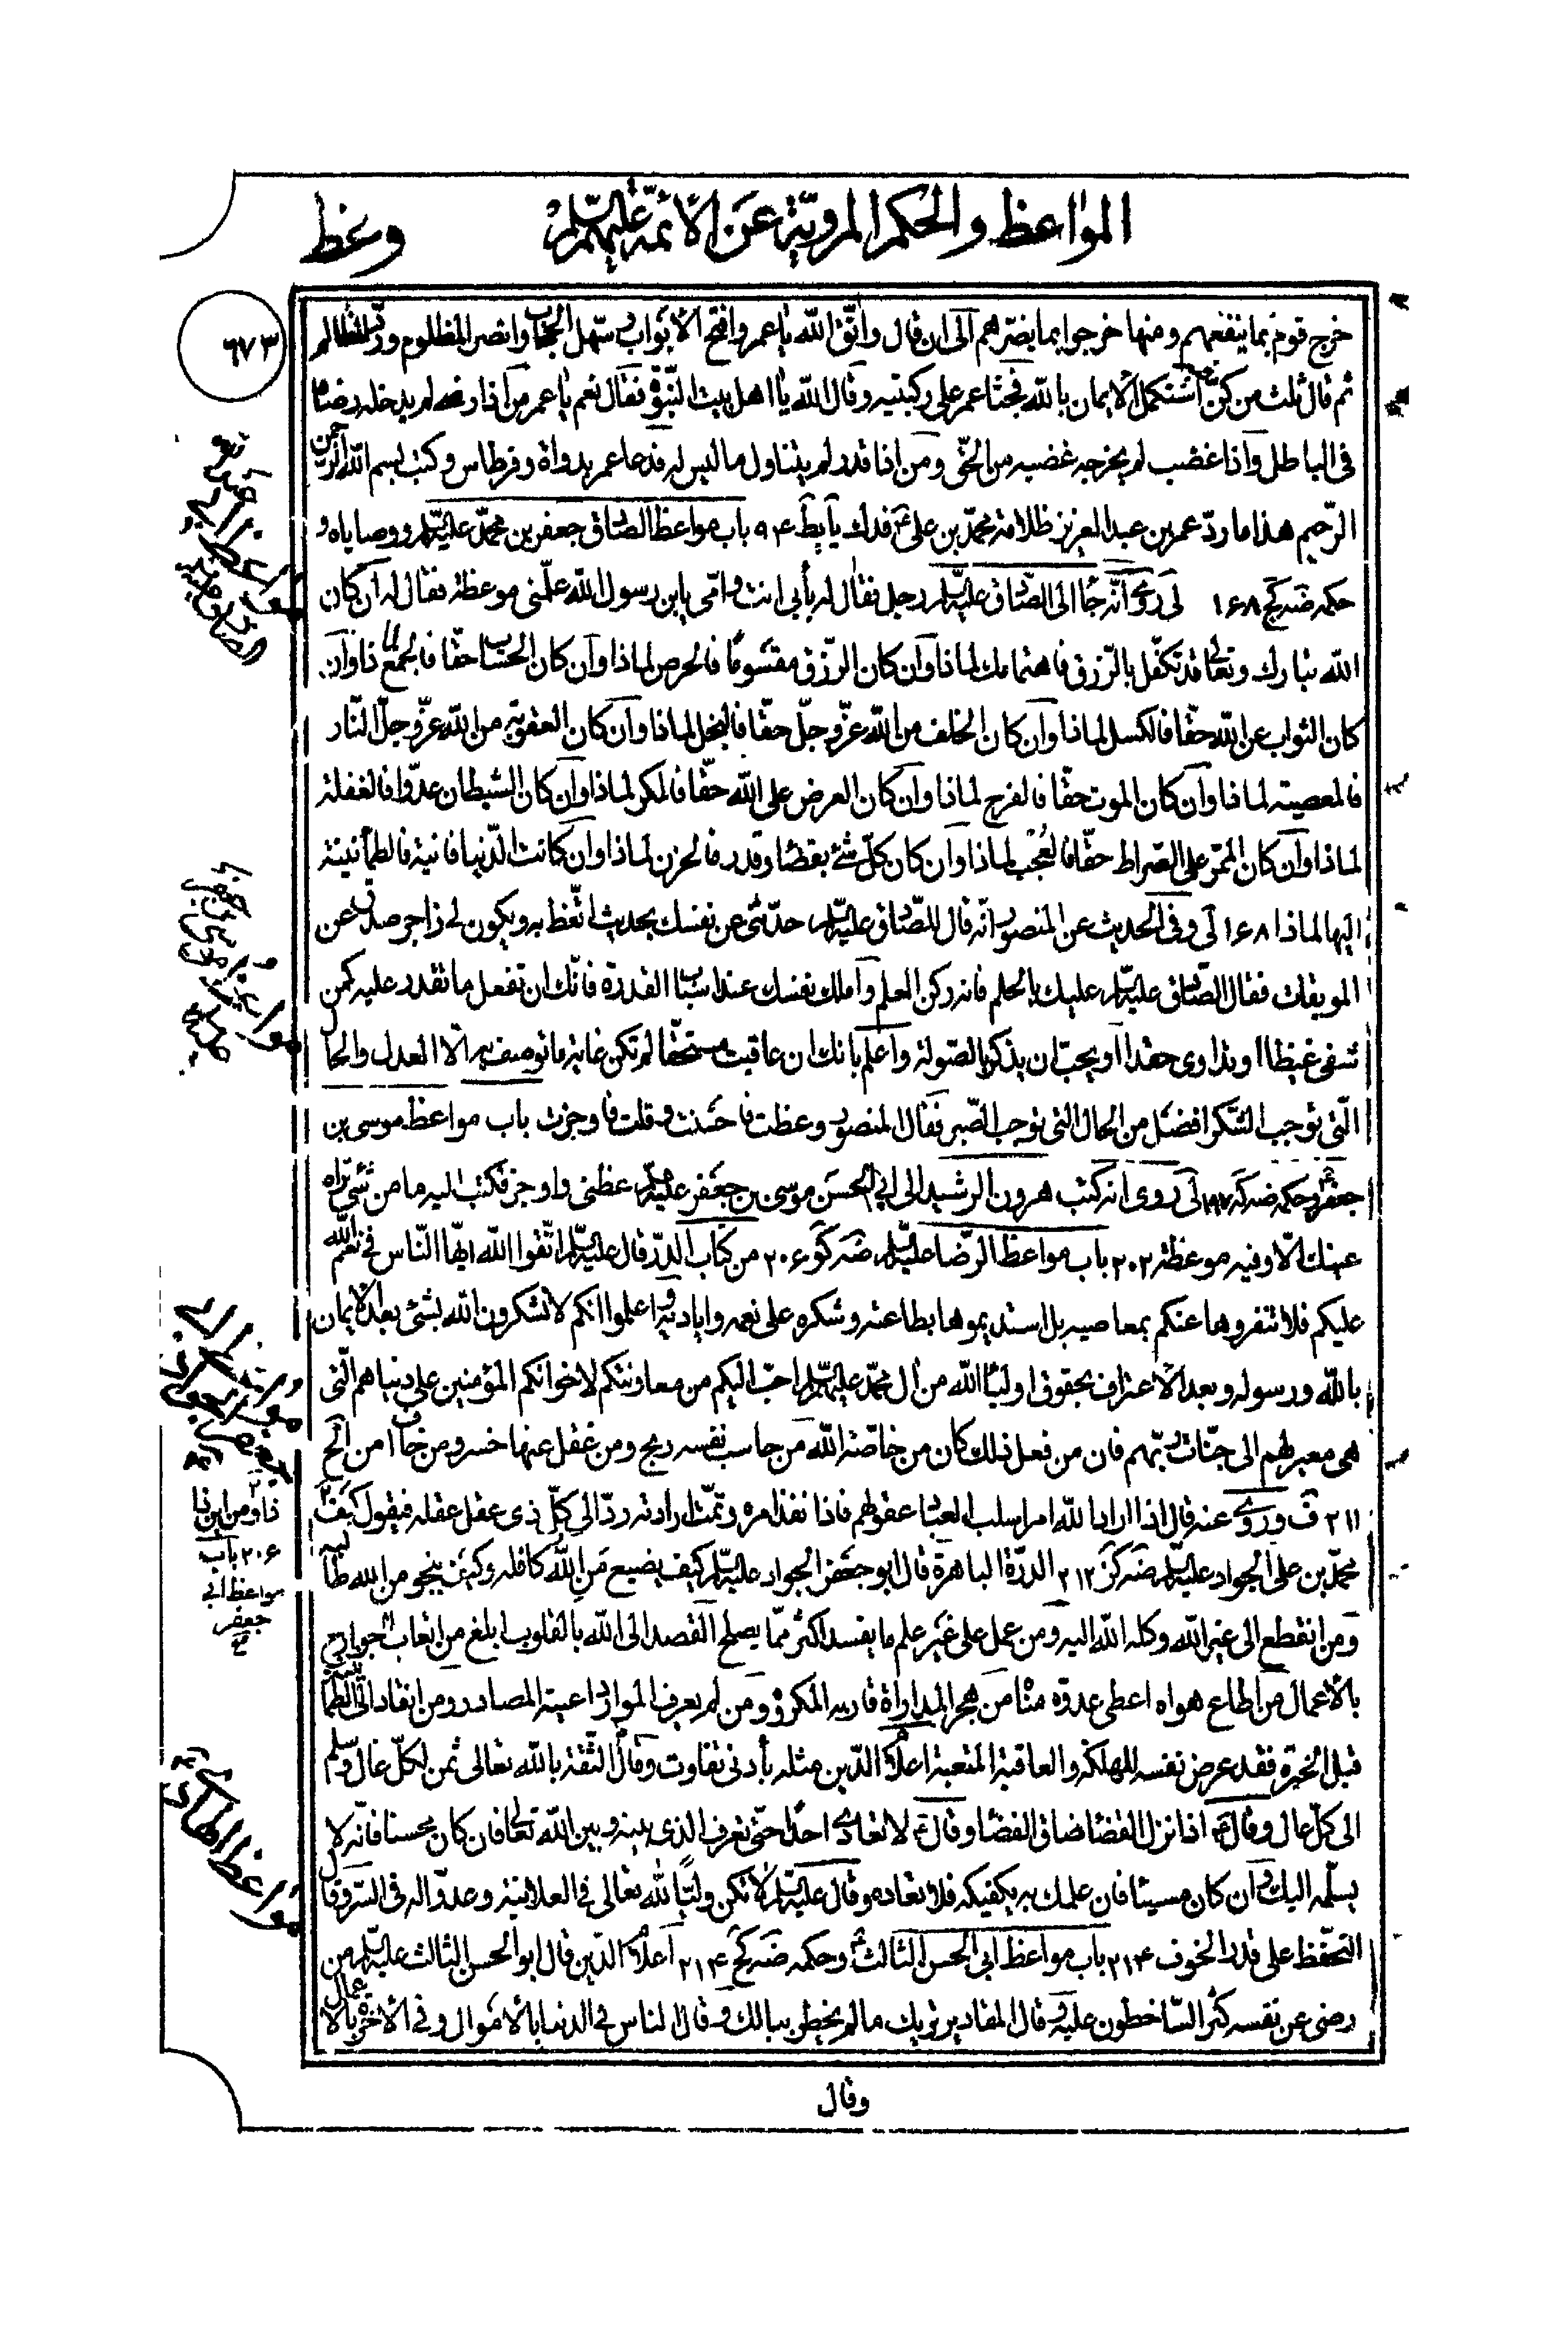 المواعظ والحكم المرويّة عن الأئمّة عليهم السّلم
وعظ
٦٧٣
خرج قوم بما ينفعهم ومنها خرجوا بما يضرّهم الى ان قال واتّق الله يا عمر وافتح الأبواب وسهل الحجاب وانصر المظلوم وردّ المظالم
ثم قال ثلث من كنّ فيه استكمل الايمان بالله فجثا عمر على ركبتيه وقال الله يا اهل بيت النّبوّة فقال نعم يا عمر من اذا رضى لم يدخله رضاه
فى الباطل واذا غضب لم يخرجه غضبه من الحقّ ومن اذا قدر لم يتناول ما ليس له فدعا عمر بدواة وقرطاس وكتب بسم الله الرّحمن
الرّحيم هذا ما ردّ عمر بن عبد العزيز ظلامة محمّد بن على ع فدك يا بط ٩۴ باب مواعظ الصّادق جعفر بن محمّد عليه السّلم ووصاياه و
حكمه ضه كج ١۶٨ لى روى انّه جاء الى الصّادق عليه السّلم رجل فقال له بأبى انت وامّى يابن رسول الله علّمنى موعظة فقال له ان كان
الله تبارك وتعالى قد تكفّل بالرّزق فاهتمامك لماذا وان كان الرّزق مقسومًا فالحرص لماذا وان كان الحساب حقّا فالجمع لماذا وان
كان الثواب عن الله حقّا فالكسل لماذا وان كان الخلف من الله عزّ وجلّ حقّا فالبخل لماذا وان كان العقوبة من الله عزّ وجلّ النّار
فالمعصية لماذا وان كان الموت حقّا فالفرح لماذا وان كان العرض على الله حقّا فالمكر لماذا وان كان الشيطان عدوّا فالغفلة
لماذا وان كان الممرّ على الصّراط حقّا فالعجب لماذا وان كان كلّ شئ بقضاء وقدر فالحزن لماذا وان كانت الدّنيا فانية فالطمأنينة
اليها لماذا ١۶٨ لى وفى الحديث عن المنصور انّه قال للصّادق عليه السّلم حدّثنى عن نفسك بحديث اتّعظ به ويكون لى زاجر صدق عن
الموبقات فقال الصّادق عليه السّلم عليك بالحلم فانه ركن العلم واملك نفسك عند اسباب القدرة فانّك ان تفعل ما تقدر عليه كمن
شفى غيظا او تداوى حقدا او يحبّ ان يذكر بالصّولة واعلم بانك ان عاقبت مستحقّا لم تكن غاية ما توصف به الّا العدل والحال
الّتى توجب الشّكر افضل من الحال التى توجب الصّبر فقال المنصور وعظت فاحسنت وقلت فاوجزت باب مواعظ موسى بن
جعفر ع وحكمه ضه كه ١٩٧ لى روى انه كتب هرون الرشيد الى ابى الحسن موسى بن جعفر عليه السّلم عظنى واوجز فكتب اليه ما من شئ تراه
عينك الّا وفيه موعظة ٢٠٢ باب مواعظ الرّضا عليه السّلم ضه كو ٢٠۶ من كتاب الدّر قال عليه السّلم اتّقوا الله ايّها النّاس فى نعم الله
عليكم فلا تنفروها عنكم بمعاصيه بل استديموها بطاعته وشكره على نعمه واياديه واعلموا انكم لا تشكرون الله بشئ بعد الايمان
بالله ورسوله وبعد الاعتراف بحقوق اولياء الله من ال محمّد عليهم السّلم احبّ اليكم من معاونتكم لاخوانكم المؤمنين على دنياهم الّتى
هى معبر لهم الى جنّات ربّهم فان من فعل ذلك كان من خاصّة الله من حاسب نفسه ربح ومن غفل عنها خسر ومن خاف امن الخ
٢١١ ف وروى عنه قال اذا اراد الله امرا سلب العباد عقولهم فاذا نفذ امره وتمّت ارادته ردّ الى كلّ ذى عقل عقله فيقول كيف
ذا ومن اين ذا
٢٠۶ باب
مواعظ ابى
جعفر
محمّد بن على الجواد عليه السّلم ضه كز ٢١٢ الدرّة الباهرة قال ابو جعفر الجواد عليه السّلم كيف يضيع من الله كافله وكيف ينجو من الله طالبه
ومن انقطع الى غير الله وكله الله اليه ومن عمل على غير علم ما يفسد اكثر ممّا يصلح القصد الى الله بالقلوب ابلغ من اتعاب الجوارح
بالاعمال من اطاع هواه اعطى عدوّه مناه من هجر المداراة قاربه المكروه ومن لم يعرف الموارد اعيته المصادر ومن انقاد الى الطمأنينة
قبل الخبرة فقد عرض نفسه للهلكة والعاقبة المتعبة اعلام الدّين مثله بأدنى تفاوت وقال ع الثّقة بالله تعالى ثمن لكلّ غال وسلّم
الى كلّ عال وقال ع اذا نزل القضاء ضاق الفضاء وقال ع لا تعادى احدًا حتّى تعرف الذى بينه وبين الله تعالى فان كان محسنا فانّه لا
يسلّمه اليك وان كان مسيئا فان علمك به يكفيكه فلا تعاده وقال عليه السّلم لا تكن وليّا لله تعالى فى العلانية وعدوّا له فى السّر وقال
التحّفظ على قدر الخوف ٢١۴ باب مواعظ ابى الحسن الثالث ع وحكمه ضه كح ٢١۴ اعلام الدّين قال ابو الحسن الثالث عليه السّلم من
رضى عن نفسه كثر السّاخطون عليه وقال المقادير تريك ما لم يخطر ببالك وقال النّاس فى الدنيا بالأموال وفى الأخرة بالأعمال
وقال